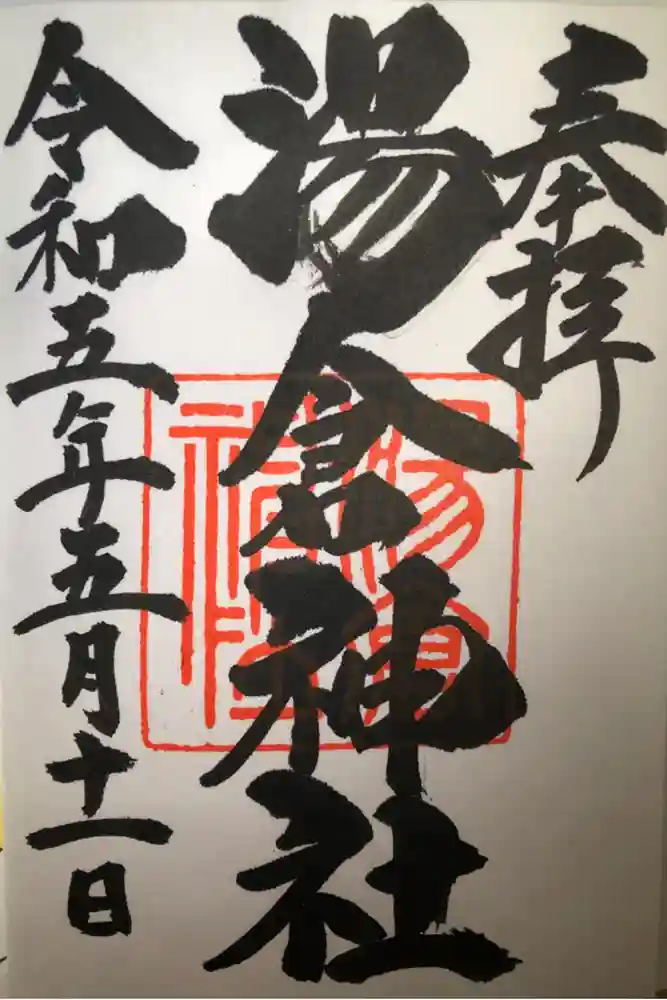 奉拝
湯倉神社
令和五年五月十一日